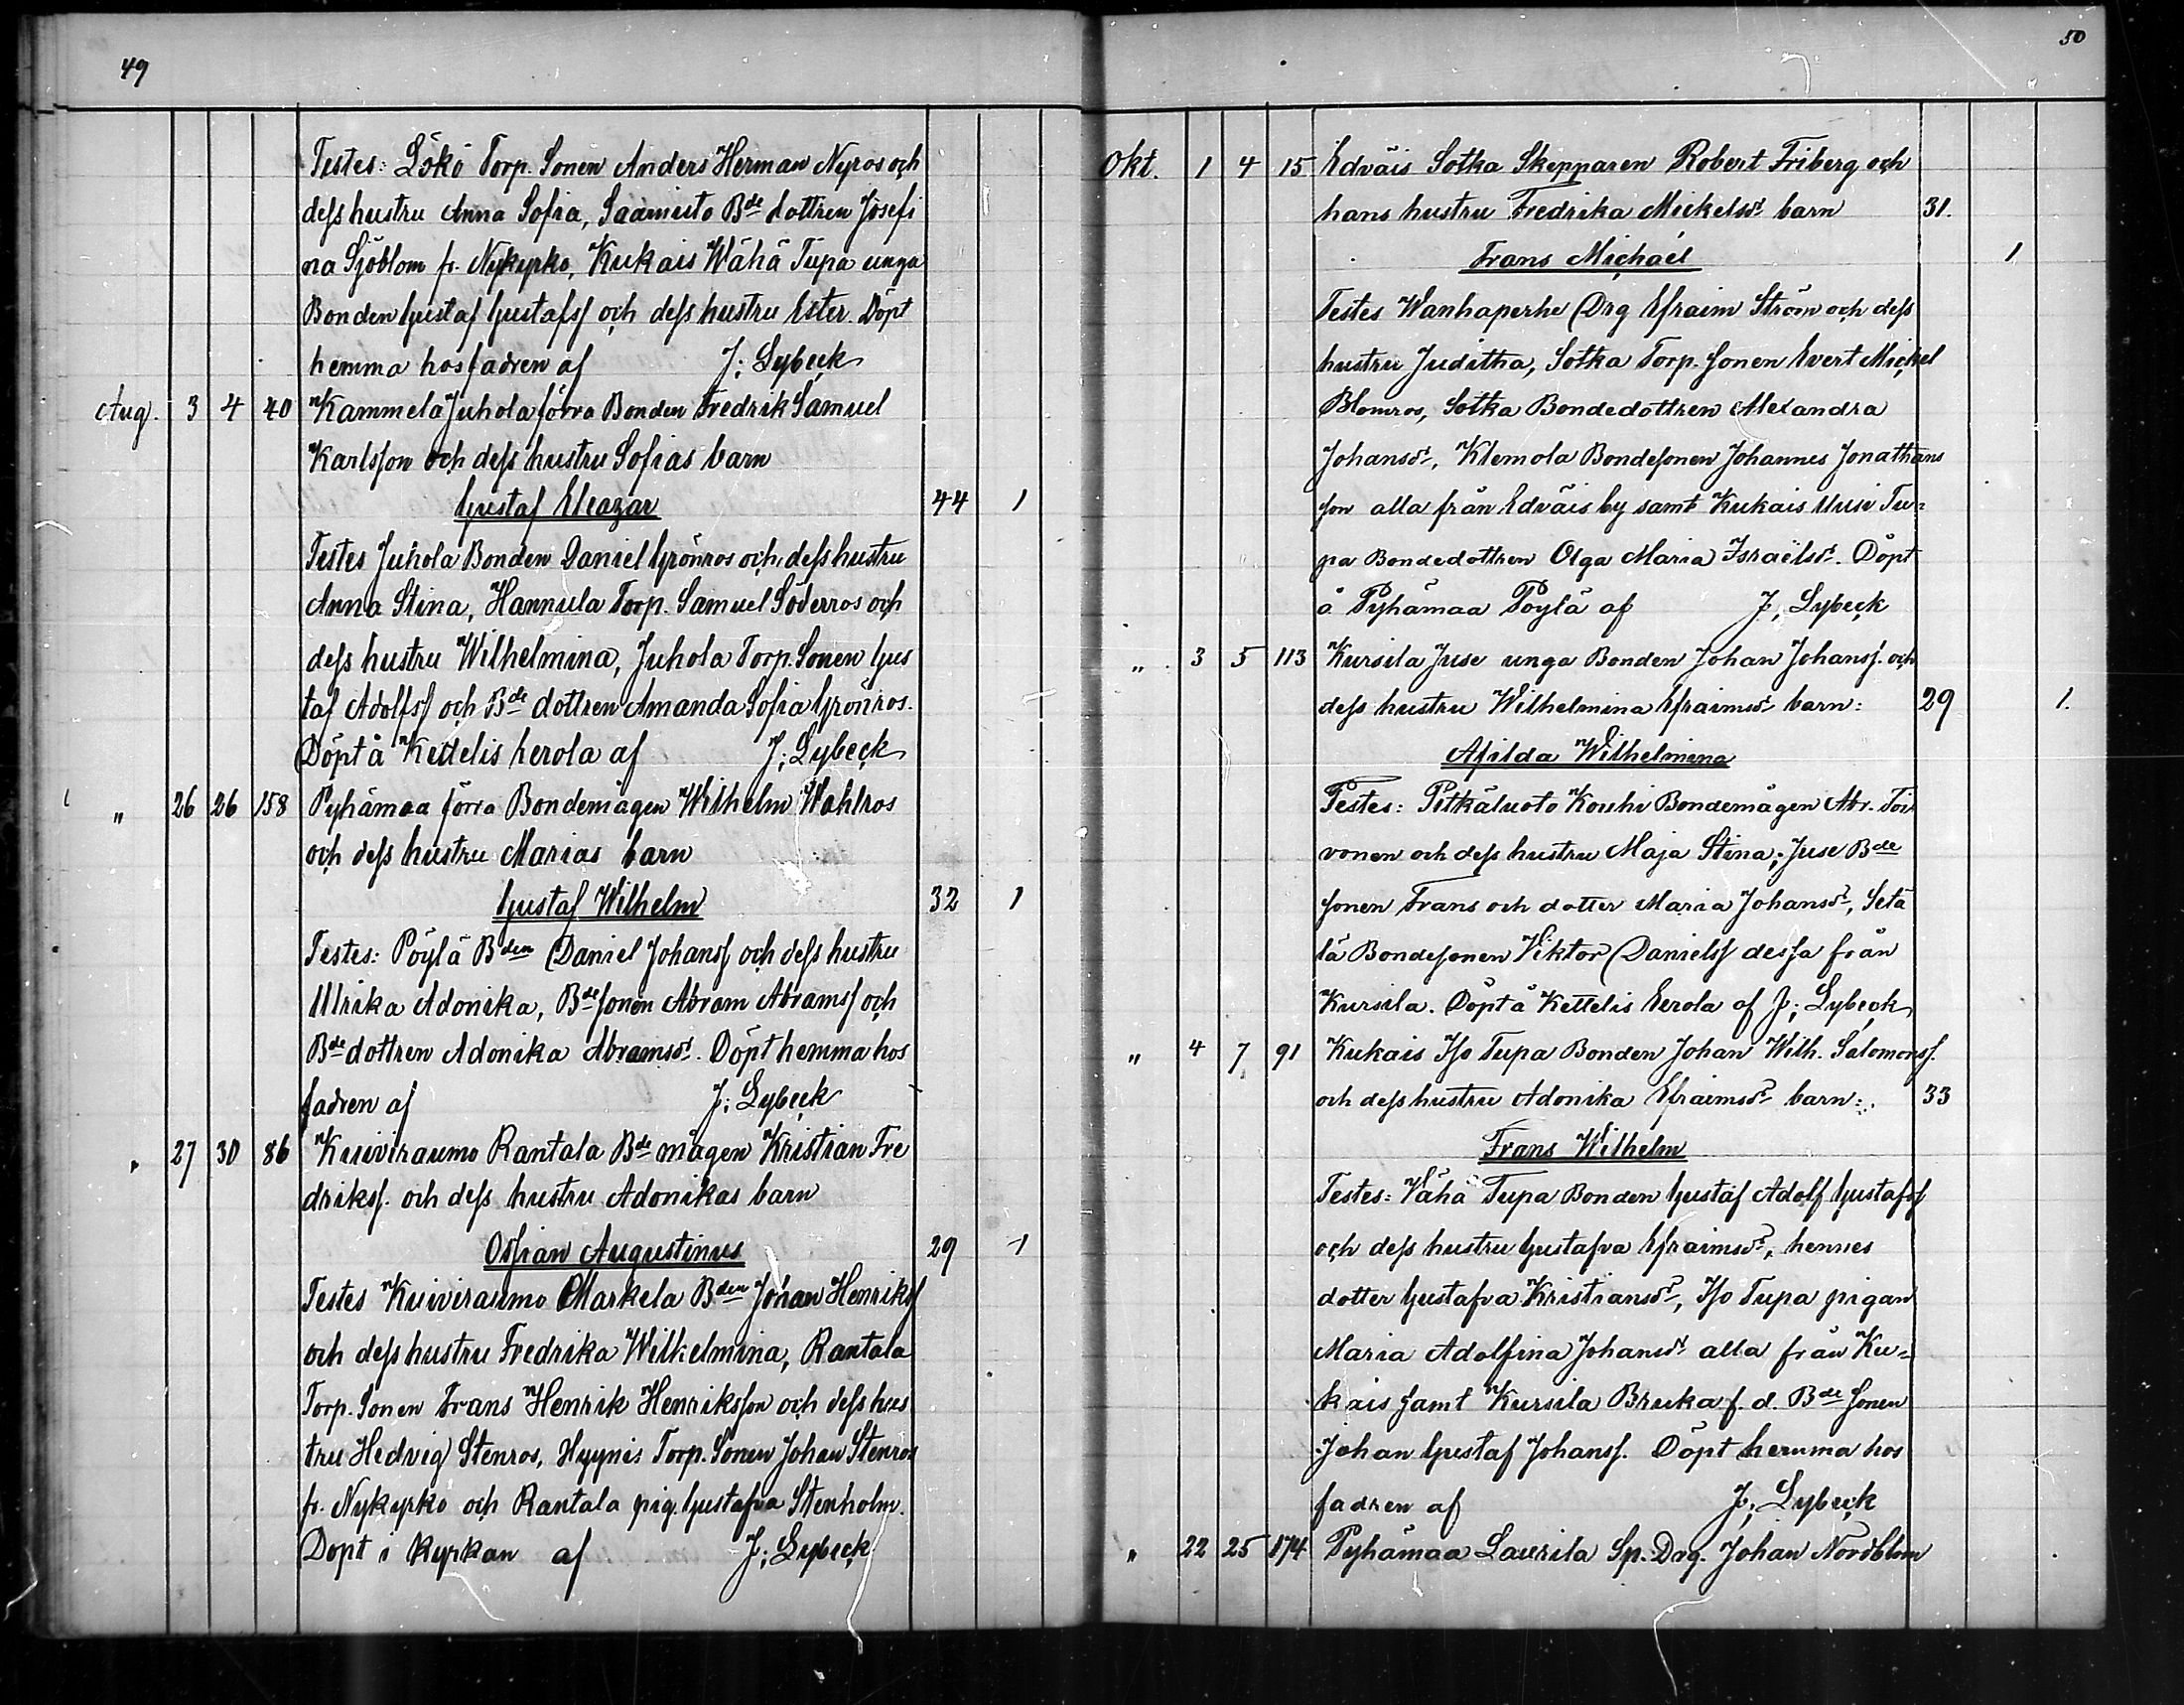 49
Testes: Lökö Torp. Sonen Anders Herman Nyros och
dess hustru Anna Sofia, Saamisto Bde dottren Josefi
na Sjöblom fr. Nykyrko, Kukais Wähä Tupa unga
Bonden Gustaf Gustafss och dess hustru Ester. Döpt
hemma hos fadren af J. Lybeck
Aug. 3 4 40 Kammela Juhola förra Bonden Fredrik Samuel
Karlsson och dess hustru Sofias barn
Gustaf Eleazar 44 1
Testes Juhola Bonden Daniel Grönros och dess hustru
Anna Stina, Hannula Torp. Samuel Söderros och
dess hustru Wilhelmina, Juhola Torp. Sonen Gus
taf Adolfss och Bde dottren Amanda Sofia Grönros.
Döpt å Kettelis Eerola af J. Lybeck
" 26 26 158 Pyhämaa förra Bondemågen Wilhelm Wahlros
och dess hustru Marias barn
Gustaf Wilhelm 32 1
Testes: Pöylä Bden Daniel Johanss och dess hustru
Ulrika Adonika, Bde sonen Abram Abramss och
Bde dottren Adonika Abramsdr. Döpt hemma hos
fadren af J. Lybeck
" 27 30 86 Kuiviraumo Rantala Bde mågen Kristian Fre
drikss. och dess hustru Adonikas barn
Ossian Augustinus 29 1
Testes Kuiviraumo Markela Bden Johan Henrikss
och dess hustru Fredrika Wilhelmina, Rantala
Torp. Sonen Frans Henrik Henriksson och dess hus
tru Hedvig Stenros, Hyynis Torp. Sonen Johan Stenros
fr. Nykyrko och Rantala pig. Gustafva Stenholm.
Döpt i Kyrkan af J. Lybeck
50
Okt. 1 4 15 Edväis Sotka Skepparen Robert Friberg och
hans hustru Fredrika Mickelsdr barn 31.
Frans Michaël 1
Testes Wanhaperhe Drg Efraim Ström och dess
hustru Juditha, Sotka Torp. sonen Evert Mickel
Blomros, Sotka Bondedottren Alexandra
Johansdr, Klemola Bondesonen Johannes Jonathans
son alla från Edväis by samt Kukais Uusi Tu-
pa Bondedottren Olga Maria Israëlsdr. Döpt
å Pyhämaa Pöylä af J. Lybeck
" 3 5 113 Kursila Juse unga Bonden Johan Johanss. och
dess hustru Wilhelmina Efraimsdr barn: 29 1.
Afilda Wilhelmina
Testes: Pitkäluoto Kouhi Bondemågen Abr. Toi
vonen och dess hustru Maja Stina; Juse Bde
sonen Frans och dotter Maria Johansdr, Setä
lä Bondesonen Viktor Danielss dessa från
Kursila. Döpt å Kettelis Eerola af J. Lybeck
" 4 7 91 Kukais Iso Tupa Bonden Johan Wilh. Salomonss.
och dess hustru Adonika Efraimsdr barn: 33
Frans Wilhelm
Testes: Vähä Tupa Bonden Gustaf Adolf Gustafss
och dess hustru Gustafva Efraimsdr, hennes
dotter Gustafva Kristiansdr, Iso Tupa pigan
Maria Adolfina Johansdr alla från Ku-
kais samt Kursila Bruka f. d. Bde sonen
Johan Gustaf Johanss. Döpt hemma hos
fadren af J. Lybeck
" 22 25 174 Pyhämaa Laurila Sp. Drg. Johan Nordblom